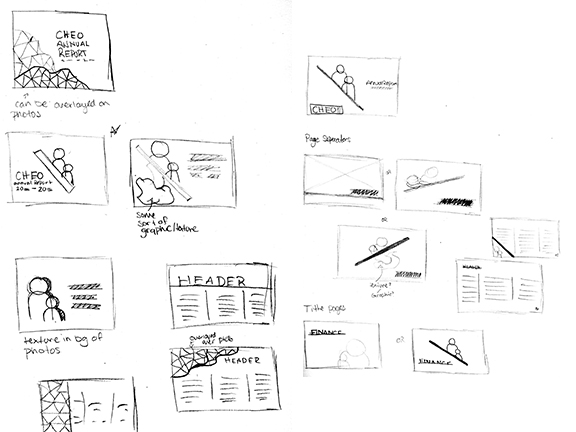 CHEO
ANNUAL
REPORT
can be overlayed on
photos
CHEO
annual report
some
sort of
graphic/texture
texture in bg of
photos
HEADER
overlayed over photo
HEADER
CHEO
Page Separators
OR
OR
HEADER
Title pages
FINANCE
OR
FINANCE